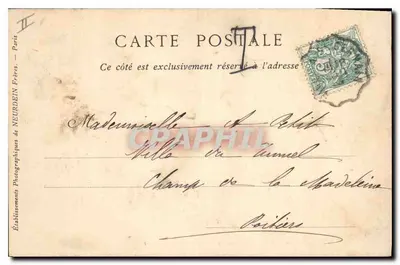 II
CARTE POSTALE
T
Ce côté est exclusivement réservé à l'adresse
Établissements Photographiques de NEURDEIN Frères. — Paris
CPAPHIL
Mademoiselle A Petit
Villa du Tunnel
Champ de la Madeleine
Poitiers